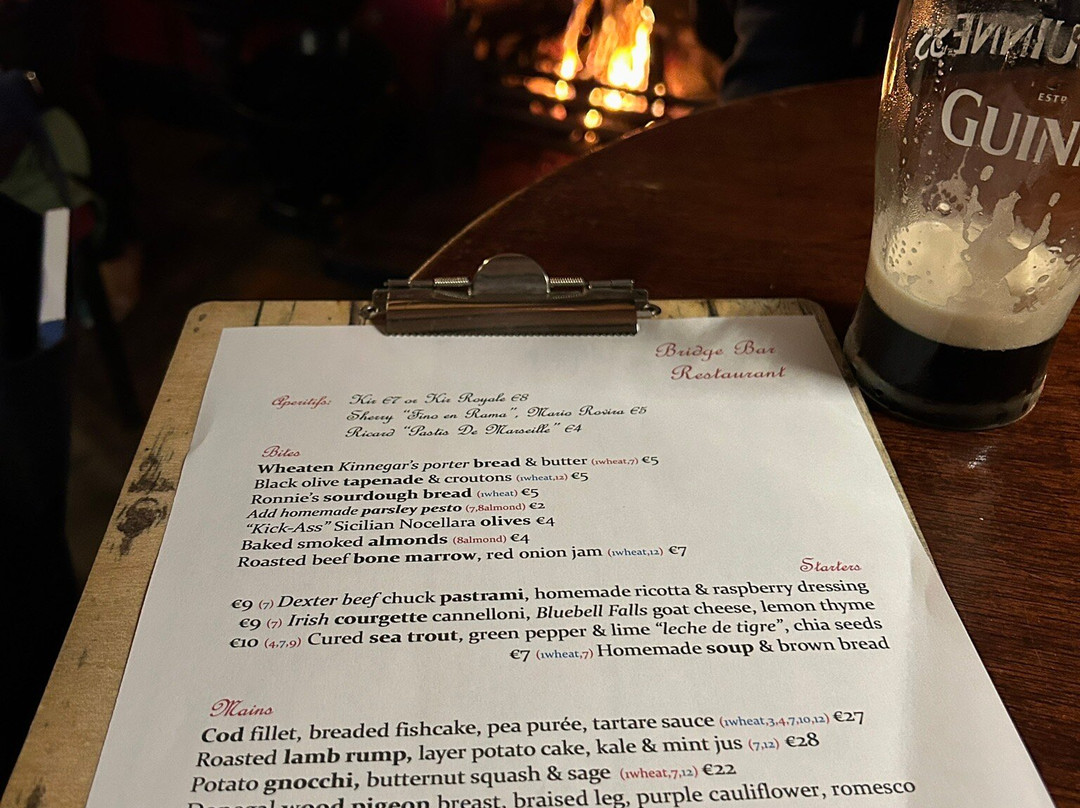 GUINNESS
ESTD
GUINN
Bridge Bar
Restaurant
Aperitifs: Kir €7 or Kir Royale €8
Sherry "Fino en Rama", Maria Rovira €5
Ricard "Pastis De Marseille" €4
Bites
Wheaten Kinnegar's porter bread & butter (1wheat,7) €5
Black olive tapenade & croutons (1wheat,12) €5
Ronnie's sourdough bread (1wheat) €5
Add homemade parsley pesto (7,8almond) €2
"Kick-Ass" Sicilian Nocellara olives €4
Baked smoked almonds (8almond) €4
Roasted beef bone marrow, red onion jam (1wheat,12) €7
Starters
€9 (7) Dexter beef chuck pastrami, homemade ricotta & raspberry dressing
€9 (7) Irish courgette cannelloni, Bluebell Falls goat cheese, lemon thyme
€10 (4,7,9) Cured sea trout, green pepper & lime "leche de tigre", chia seeds
€7 (1wheat,7) Homemade soup & brown bread
Mains
Cod fillet, breaded fishcake, pea purée, tartare sauce (1wheat,3,4,7,10,12) €27
Roasted lamb rump, layer potato cake, kale & mint jus (7,12) €28
Potato gnocchi, butternut squash & sage (1wheat,7,12) €22
Donegal wood pigeon breast, braised leg, purple cauliflower, romesco